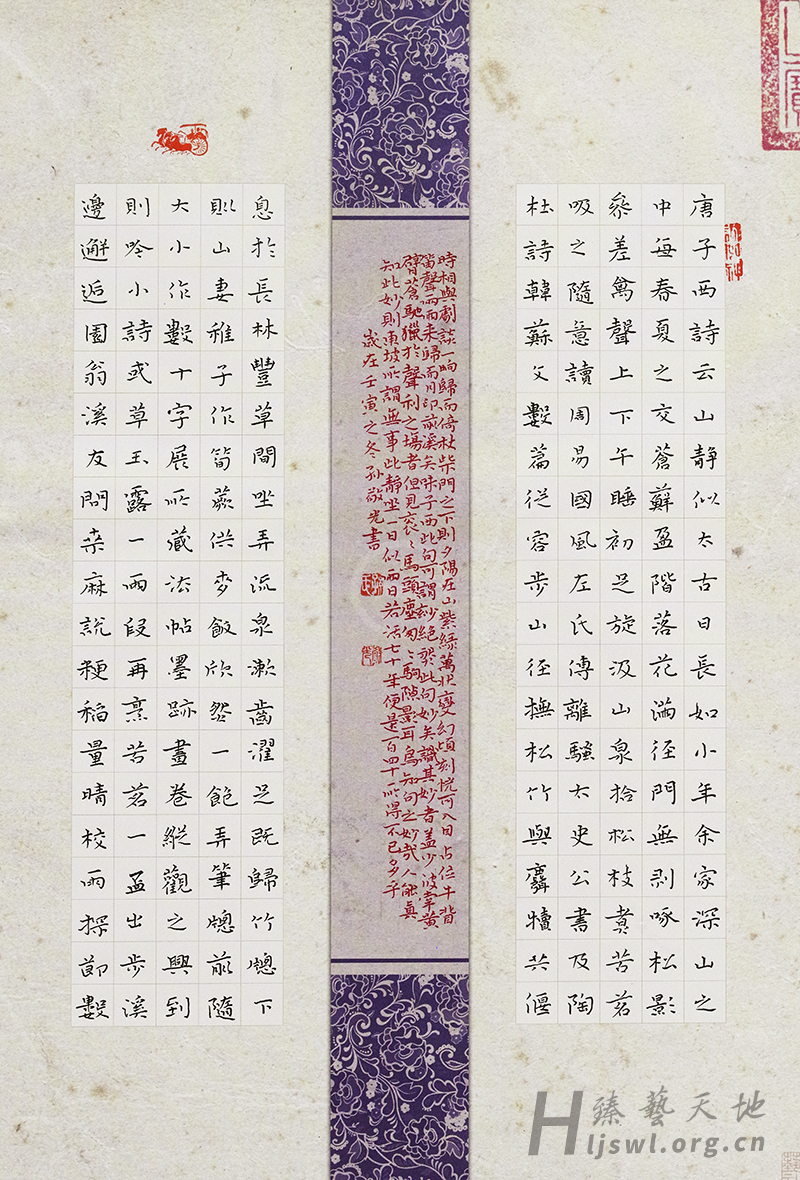 唐子西詩云山靜似太古日長如小年余家深山之
中每春夏之交蒼蘚盈階落花滿徑門無剝啄松影
參差禽聲上下午睡初足旋汲山泉拾松枝煑苦茗
吸之隨意讀周易國風左氏傳離騷太史公書及陶
杜詩韓蘇文數篇從容步山徑撫松竹與麛犢共偃
息於長林豐草間坐弄流泉漱齒濯足既歸竹牕下
則山妻稚子作筍蕨供麥飯欣然一飽弄筆牕前隨
大小作數十字展所藏法帖墨跡畫卷縱觀之興到
則吟小詩或草玉露一兩段再烹苦茗一盂出步溪
邊邂逅園翁溪友問桒麻說粳稻量晴校雨探節數
時相與劇談一晌歸而倚杖柴門之下則夕陽在山紫綠萬狀變幻頃刻恍可入目占位牛背
笛聲兩兩來歸而月印前溪矣味子西此句可謂妙絕然此句妙矣識其妙者蓋少彼牽黃
臂蒼馳獵於聲利之場者但見袞〻馬頭塵匆〻駒隙影耳烏知句之妙哉人能真
知此妙則東坡所謂無事此靜坐一日似兩日若活七十年便是一百四十所得不已多乎
歲在壬寅之冬孫敬光書
臻藝天地
Hljswl.org.cn